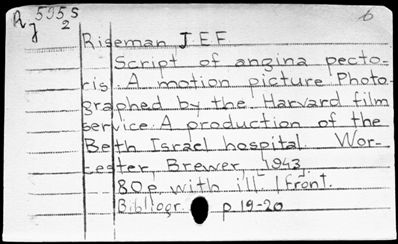 R 595s
j 2
6
Riseman J E F
Script of angina pecto-
ris. A motion picture Photo-
graphed by the Harvard film
service. A production of the
Beth Israel hospital Wor-
cester, Brewer, 1943.
80p. with ill. 1 front.
Bibliogr. p. 19-20